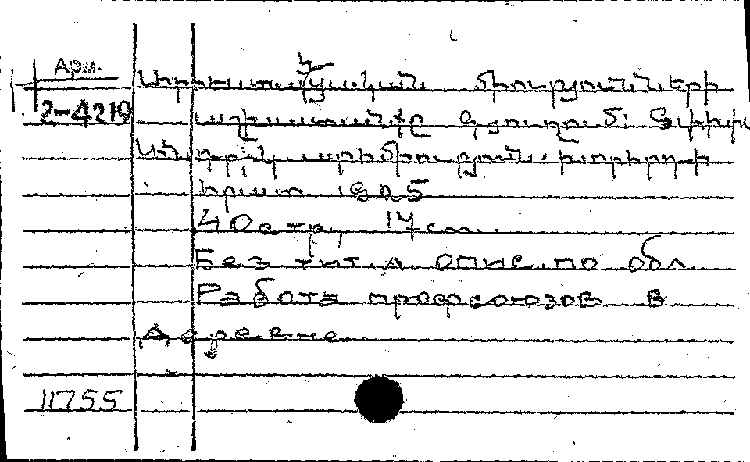 Арм.
Արհեստակցական միությունների
2-4219 աշխատանքը գյուղում: Թիֆլիս
միություն. խորհրդի
հրատ 1925
40 стр, 17 см.
Без тит. л опис. по обл.
Работа профсоюзов в
деревне
11755